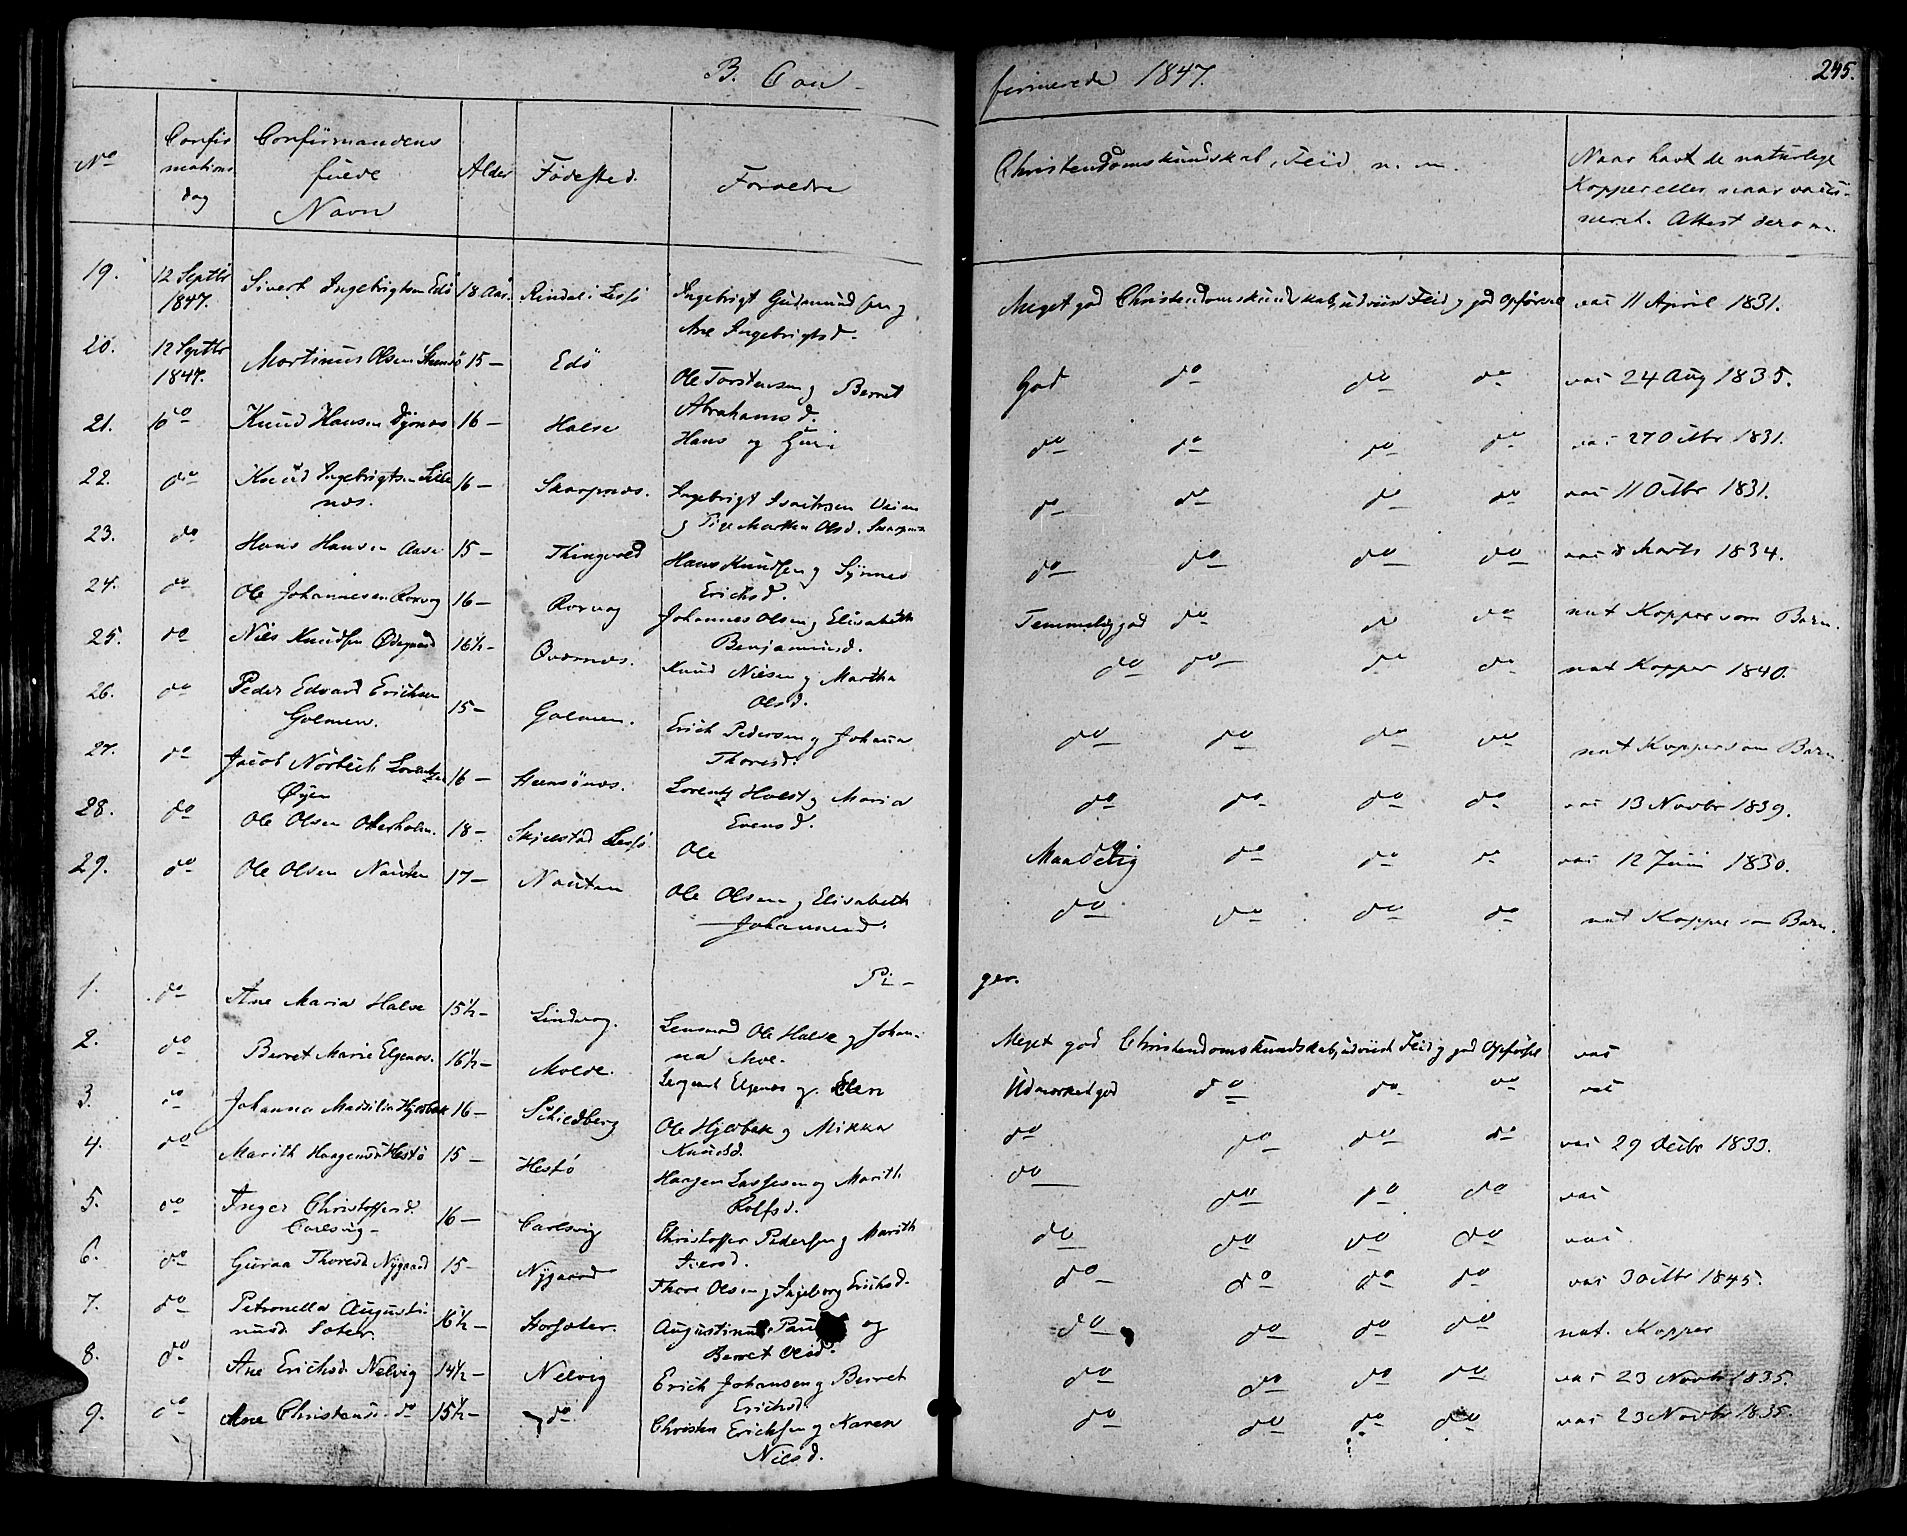 B. Con-
firmerede 1847.
245.
No
Confir
mations
dag
Confirmandens
fulde
Navn
Alder
Fødested.
Forældre
Christendomskundskab, Flid m. m.
Naar havt de naturlige
Kopper eller naar vacci-
neret. Attest derom.
19. 12 Septbr 1847. Sivert Ingebrigtsen Edø 18 Aar. Rindal i Lessø Ingebrigt Gudmundsen og
Ane Ingebrigtsd. Meget god Christendomskundskab, udviist Flid og god Opførsel vac 11 April 1831.
20. 12 Septbr 1847. Martinus Olsen 15 — Edø Ole Torstensen og Berret
Abrahamsd. God do do do vac 24 Aug 1835.
21. do Knud Hansen 16 — Halse Hans og Guri do do do do vac 27 Octbr 1831.
22. do Knud Ingebrigtsen Lille
næs. 16 — Skarpnæs. Ingebrigt
og Marthea Olsd. do do do do vac 11 Octbr 1831.
23. do Hans Hansen Aase 15 — Thingvold Hans Knudsen og Synnev
Erichsd. do do do do vac 8 Marts 1834.
24. do Ole Johannesen Rorvog 16 — Rorvog Johannes Olsen og Elisabeth
Benjaminsd. Temmelig god do do do nat Kopper som Barn.
25. do Niels Knudsen Ødegaard 16½ — Qvernes. Knud Nielsen og Martha
Olsd. do do do do nat Kopper 1840.
26. do Peder Edvard Erichsen
Golmen. 15 — Golmen. Erich Pedersen og Johanna
Thoresd. do do do do nat Kopper som Barn
27. do Jacob Norbech Lorentzen
Øyen 16 — Steensønæs. Lorentz Holst og Maria
Evensd. do do do do vac 13 Novbr 1839.
28. do Ole Olsen Otterholm. 18 — Skjelstad Lessø Ole Maadelig do do do vac 12 Juni 1830.
29. do Ole Olsen Nausten 17 — Nausten Ole Olsen og Elisabeth
Johannesd. do do do do nat Kopper som Barn.
Pi-
ger.
1. do Ane Maria Halse 15½ — Lindvog. Lensmand Ole Halse og Johan-
na Moe. Meget god Christendomskundskab, udviist Flid og god Opførsel vac
2. do Berret Marie Elgenæs. 16½ — Molde. Sergeant Elgenæs og Elen Udmærket god do do do vac
3. do Johanna Hjelbak 16 — Schiedberg Ole Hjelbak og Mikka
Knudsd. do do do do vac 29 Decbr 1833.
4. do Marith Haagensd Hestø 15 — Hestø Haagen Larssen og Marith
Rolfsd. do do do do vac
5. do Inger Christoffersd.
Carlsvig — 16 — Carlsvig Christoffer Pedersen og Marith
Iversd. do do do do vac
6. do Guraa Thoresd Nygaard 15 — Nygaard Thore Olsen og Ingeborg Erichsd. do do do do vac 3 Octbr 1845.
7. do Petronella Augusti-
nusd. Sæter. 16½ — Storsæter. Augustinus og
Berret Olsd. do do do do nat. Kopper
8. do Ane Erichsd. Nelvig 14½ — Nelvig Erich Johansen og Berret
Erichsd. do do do do vac 23 Novbr 1835.
9. do Ane Christensd. do 15½ — do Christen Erichsen og Karen
Nielsd. do do do do vac 23 Novbr 1835.